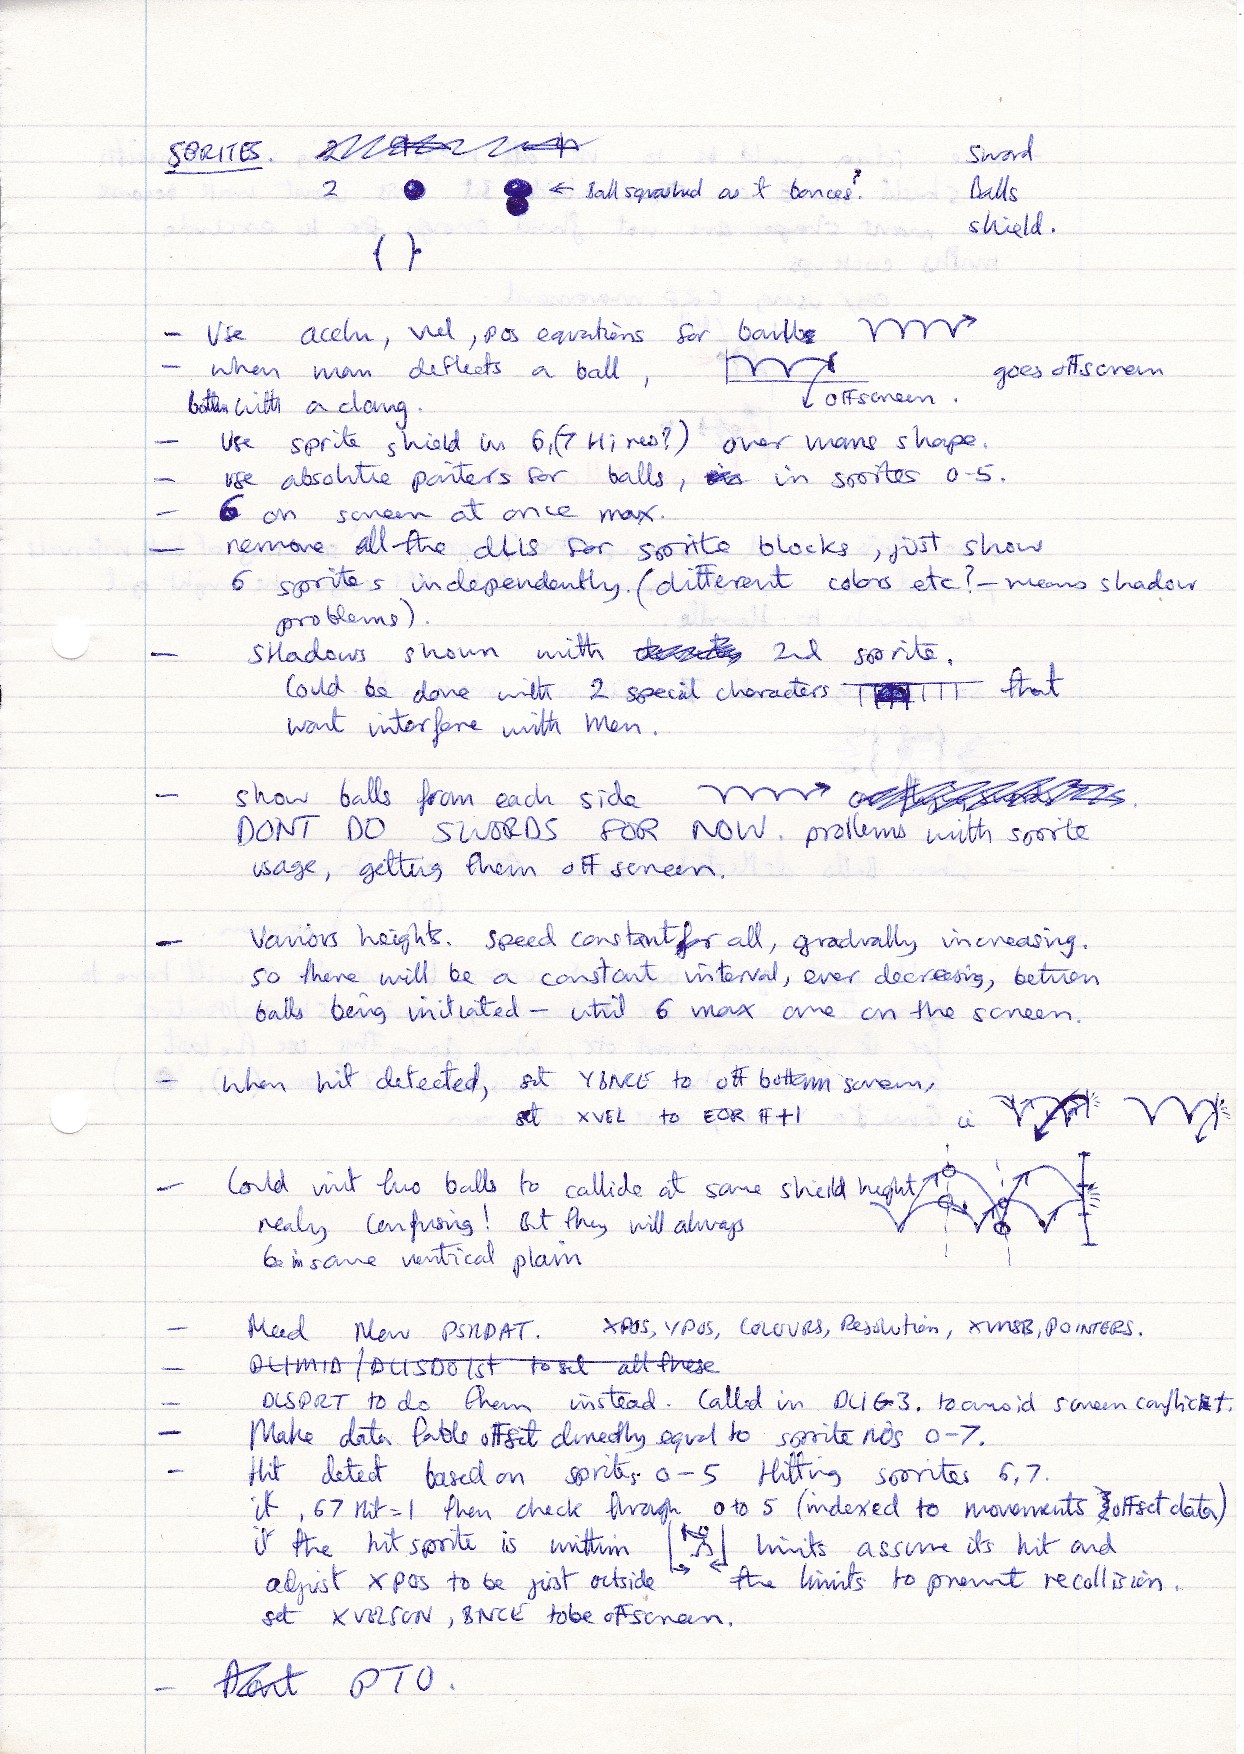 SPRITES.
Sword
2 ← Ball squashed as it bonces? Balls
shield.
{ }
- Use aceln, vel, pos equations for balls
- when man deflects a ball, goes offscreen
bottom with a clang. offscreen.
- Use sprite shield in 6,(7 Hi res?) over mans shape.
- use absolute pointers for balls, in sprites 0-5.
- 6 on screen at once max.
- remove all the dLIS for sprite blocks, just show
6 sprites independently. (different colors etc? - means shadow
problems).
- SHadows shown with 2nd sprite.
Could be done with 2 special characters that
wont interfere with Men.
- show balls from each side
DONT DO SWORDS FOR NOW. problems with sprite
usage, getting them off screen.
- Various heights. speed constant for all, gradually increasing.
so there will be a constant interval, ever decreasing, between
balls being initiated - until 6 max are on the screen.
- when hit detected, set YBNCE to off bottom screen,
set XVEL to EOR #+1 ie
- Could init two balls to collide at same shield height,
really confusing! But they will always
be in same vertical plain
- Need New PSRDAT. XPOS, YPOS, COLOURS, Resolution, XMSB, POINTERS.
- DLIMID/DLISDO 1st to set all these
- DLSPRT to do them instead. Called in DLIG3. to avoid screen conflict.
- Make data table offset directly equal to sprite nos 0-7.
- Hit detect based on sprites 0-5 Hitting sprites 6,7.
if ,67 Hit=1 then check through 0 to 5 (indexed to movements offset data)
if the hit sprite is within limits assume its hit and
adjust XPOS to be just outside the limits to prevent recollision.
set XVELSGN, BNCE to be offscreen.
- PTO.